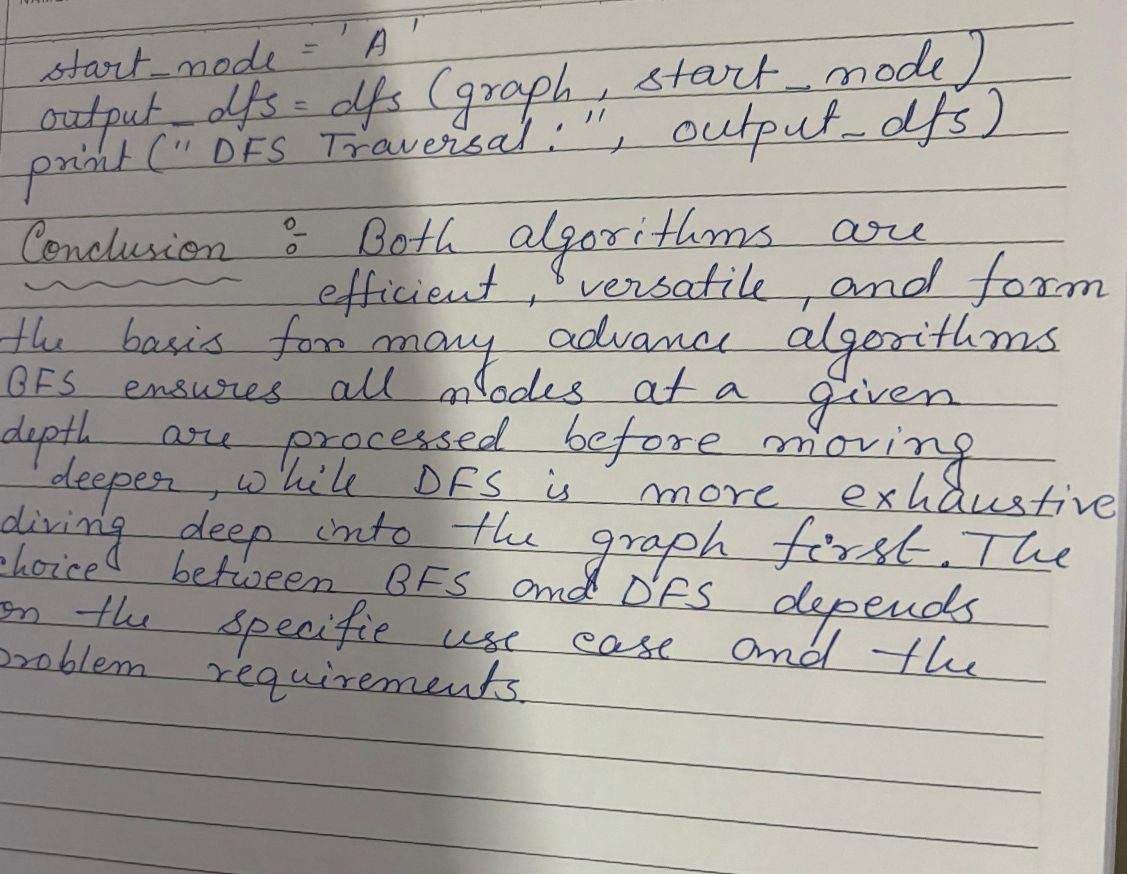 start_node = 'A'
output_dfs = dfs (graph, start_node)
print ("DFS Traversal:", output_dfs)
Conclusion : Both algorithms are
efficient, versatile, and form
the basis for many advance algorithms
BFS ensures all nodes at a given
depth are processed before moving
deeper, while DFS is more exhaustive
diving deep into the graph first. The
choice between BFS and DFS depends
on the specific use case and the
problem requirements.